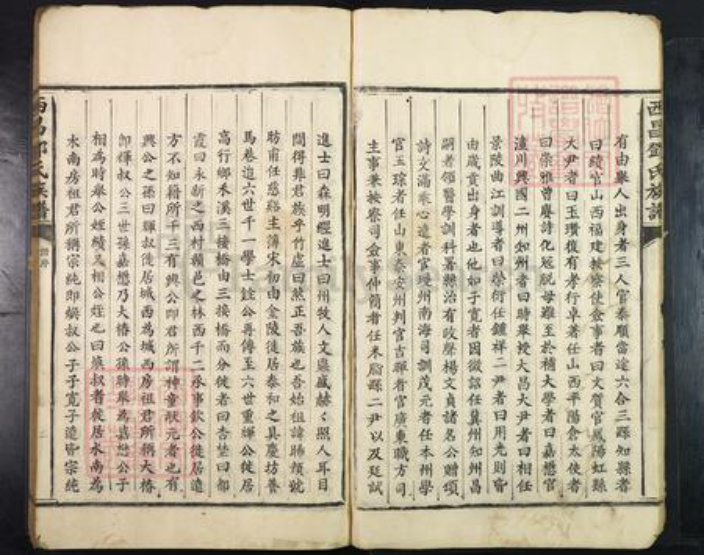 西昌鄧氏族譜
有由舉人出身者三人官泰順當塗六合三縣知縣者
曰績官山西福建按察使僉事者曰文質官鳳陽虹縣
大尹者曰玉瓚復有孝行卓著任山西平陽倉太使者
曰崇雅曾賡詩化冦脫母難至於補大學者曰嘉懋官
瀘川興國二州知州者曰時舉授大昌大尹者曰相任
景陵曲江訓導者曰榮衍任鍾祥二尹者曰用光則皆
由歲貢出身者也他如子寛者因徵詔任冀州知州昌
嗣者領醫學訓科署縣治有政聲楊文貞諸名公贈頌
詩文滿帙心遠者官授州南海司訓茂元者任本州學
官玉琮者任山東泰安州判官吉暉者官廣東職方司
主事兼按察司僉事仲簡者任米脂縣二尹以及廷試
進士曰森明經進士曰州牧人文蔚盛赫々照人耳目
間得非君族乎竹虛曰然正吾族也吾始祖諱肺頫號
昉甫任慈谿主簿宋初由金陵徙居泰和之具慶坊養
馬巷迨六世千一學士銓公再傳至六世重輝公徙居
高行鄉禾溪三接橋由三接橋而分徙者曰杏埜曰都
霞曰永新之西村贛邑之林西千二承事欽公徙居遠
方不知籍所千三有興公即君所謂神童狀元者也有
興公之孫曰輝叔徙居城西為城西房祖君所稱大椿
即輝叔公三世孫嘉懋乃大椿公孫時舉為嘉懋公子
相為時舉公姪績又相公姪也曰熉叔者徙居水南為
水南房祖君所稱宗純即熉叔公子子寛子遠皆宗純
西昌鄧氏族譜